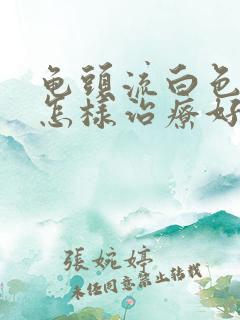 龟頭流白色
怎樣治療好
張婉婷
未经同意禁止转载